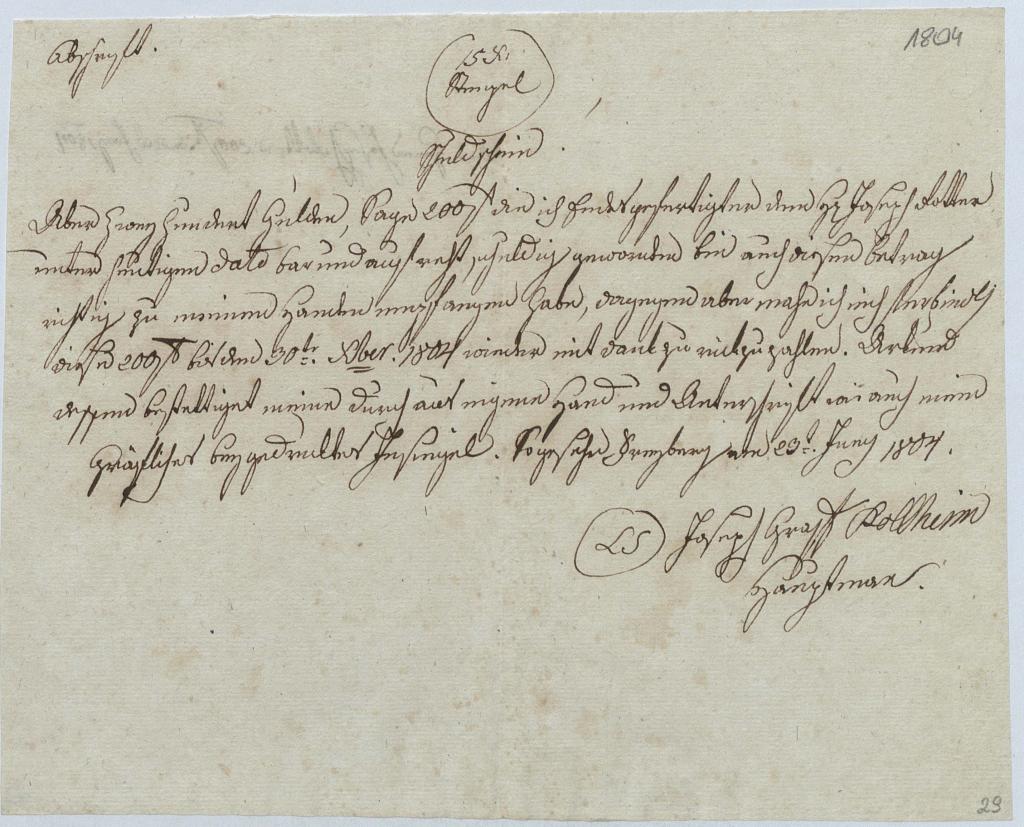 Abschrift.
1804
15 Xr
Stempel
Schuldschein.
Über Zwey Hundert Gulden, Sage 200 f die ich Endesgefertigter dem H Joseph
unter heutigen dato bar und aufrecht schuldig geworden bin auch diesen betrag
richtig zu meinen Handen empfangen habe, dagegen aber mache ich mich verbindl
diese 200 f bis den 30ten Xber. 1804 wieder mit dank zu rückzuzahlen. Urkund
dessen bestettiget meine durch aus eigene Hand und Unterschrift wie auch mein
gräfliches beygedrucktes Insiegel. So geschehn am 23t Juny 1804.
LS Joseph Graff
Hauptman.
29